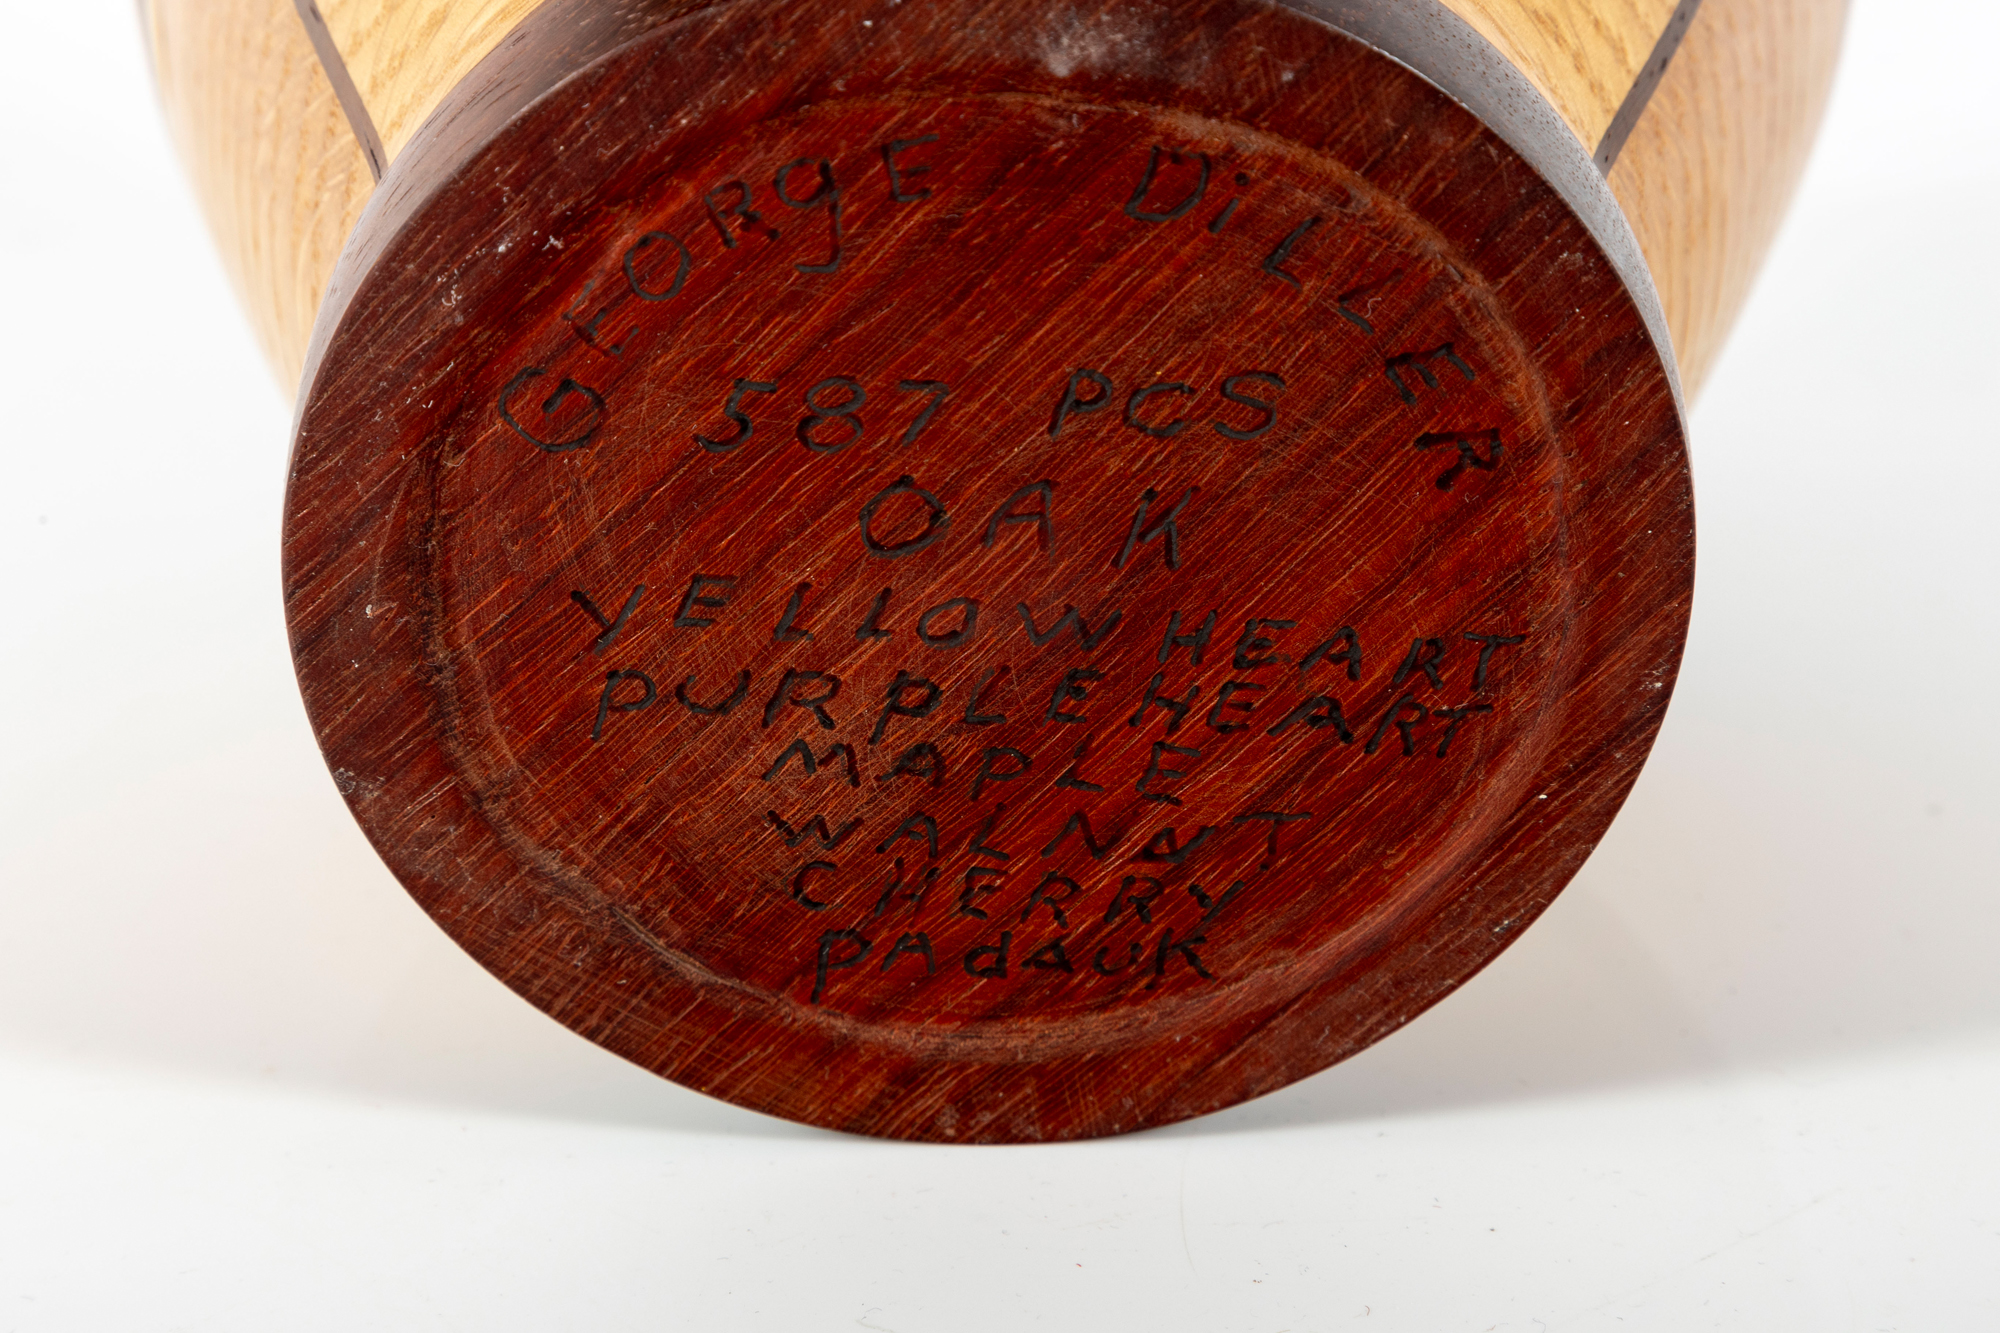 GEORgE DiLLER
587 PCS
OAK
YELLOWHEART
PURPLEHEART
MAPLE
WALNUT
CHERRY
PAdAuK